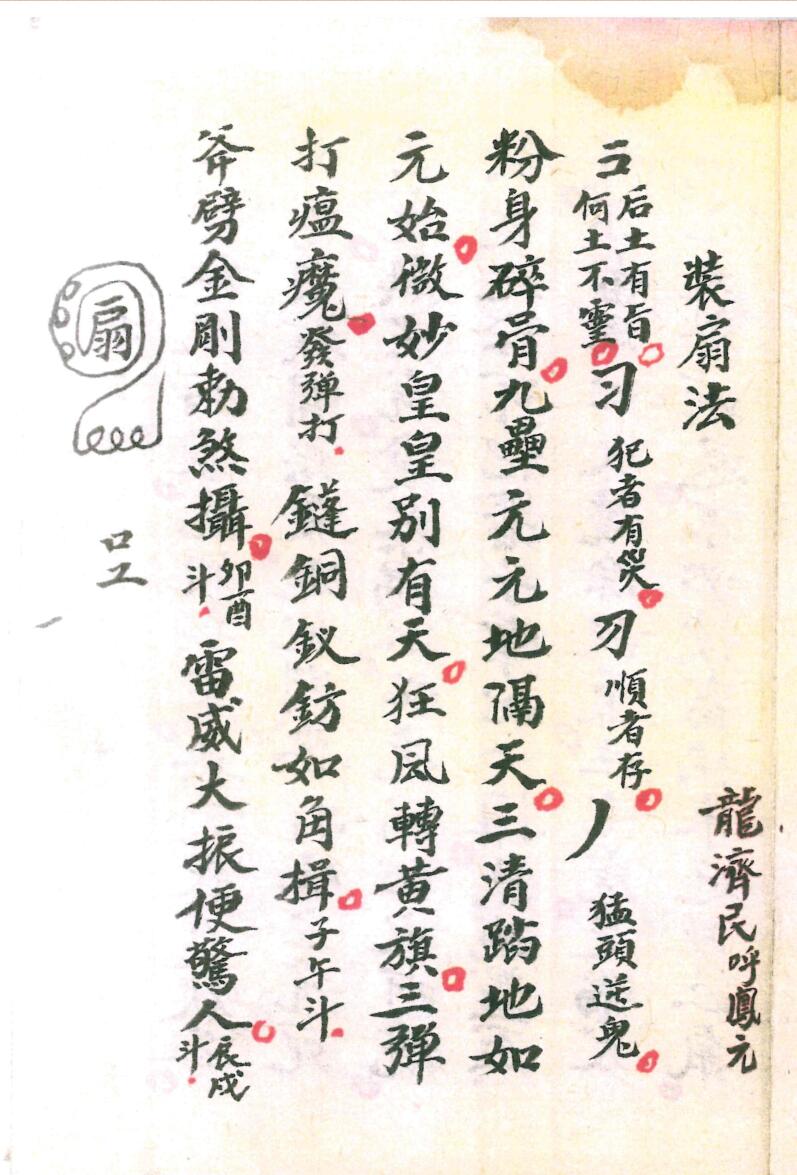 裝扇法
龍濟民呼鳳元
后土有旨
何土不靈
犯者有災
順者存
猛頭送鬼
粉身碎骨九壘元元地隔天三清蹈地如
元始微妙皇皇別有天狂風轉黃旗三彈
打瘟魔發彈打鏠銅釵鈁如角揖子午斗
斧劈金剛勅煞攝卯酉斗雷威大振便驚人辰戌斗
扇